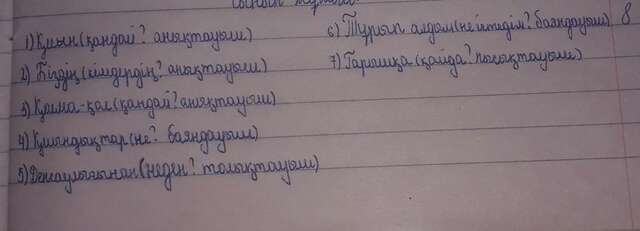 сынып жұмысы
1) Қиын (қандай? анықтауыш)
2) Біздің (кімдердің? анықтауыш)
3) Қыма-қал (қандай? анықтауыш)
4) Қиындықтар (не? баяндауыш)
5) (неден? толықтауыш)
6) Тұрып алдым (не істедім? баяндауыш)
7) Ғарышқа (қайда? пысықтауыш)
8